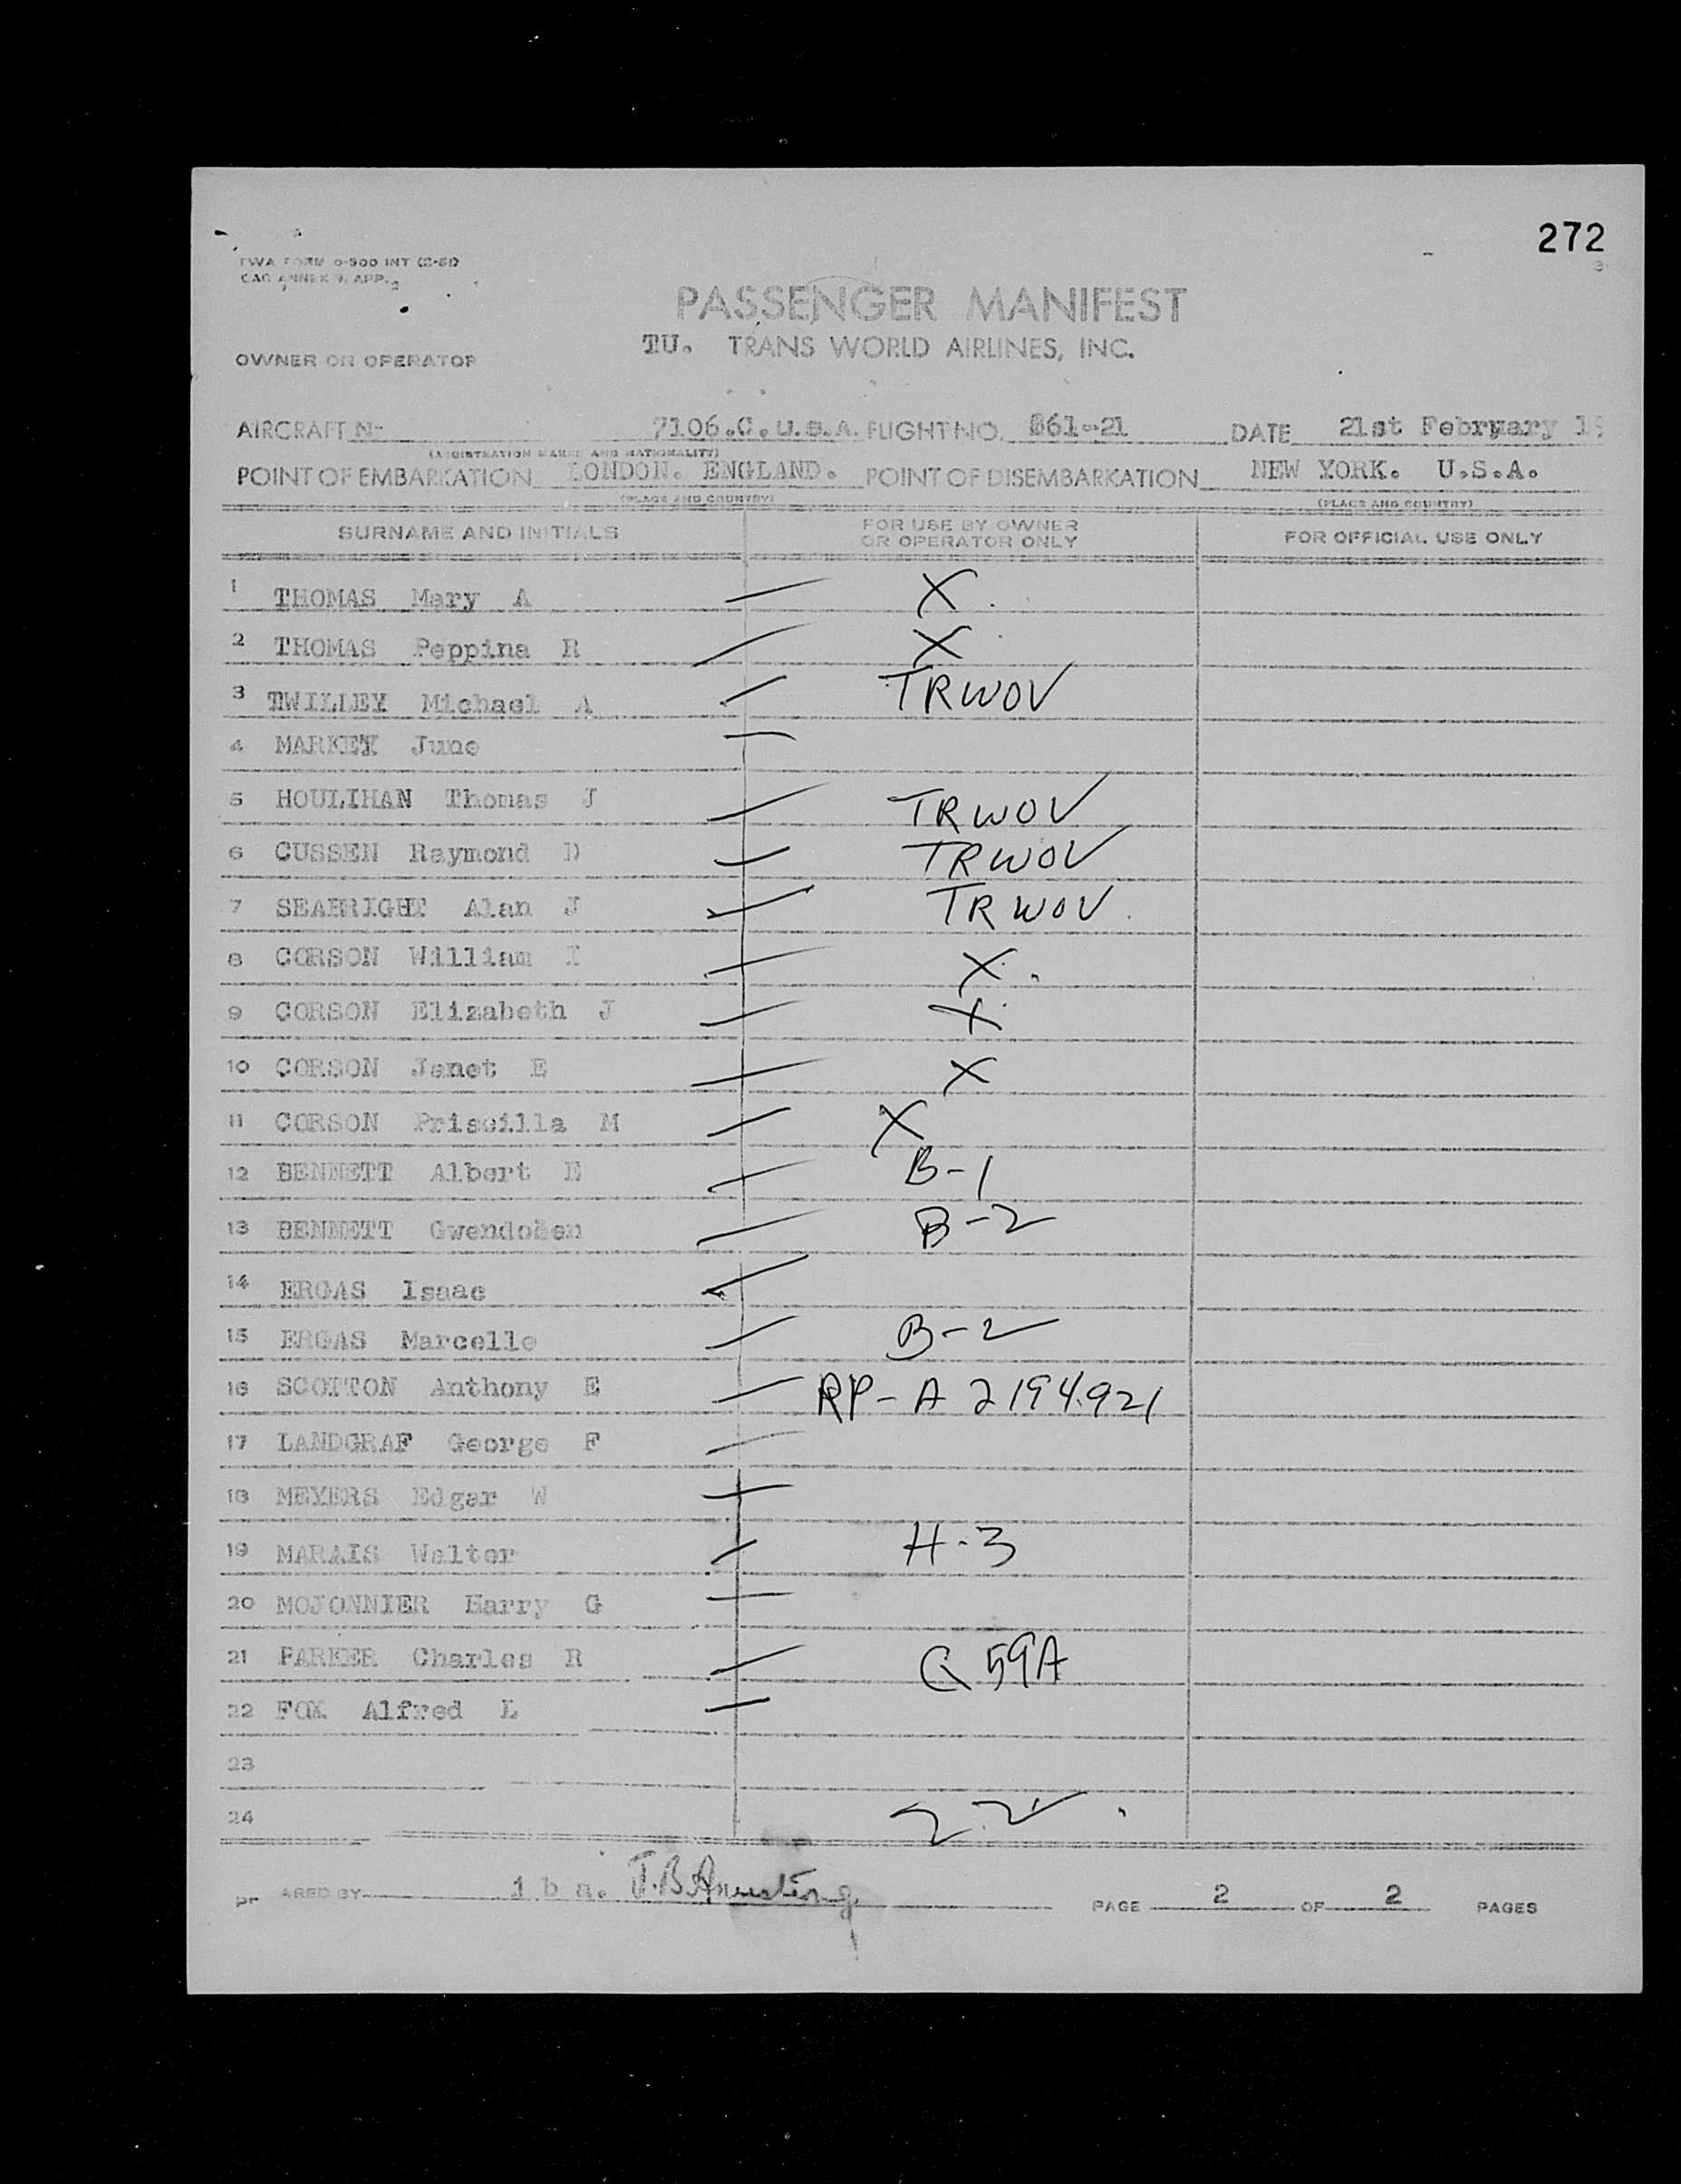 272
TWA FORM 0-900 INT (2-51)
CAO ANNEX 9, APP. 2
PASSENGER MANIFEST
OWNER OR OPERATOR TU. TRANS WORLD AIRLINES, INC.
AIRCRAFT N- 7106.C.U.S.A. FLIGHT NO. 861-21 DATE 21st February 19
(REGISTRATION MARKS AND NATIONALITY)
POINT OF EMBARKATION LONDON. ENGLAND. POINT OF DISEMBARKATION NEW YORK. U.S.A.
(PLACE AND COUNTRY) (PLACE AND COUNTRY)
SURNAME AND INITIALS FOR USE BY OWNER OR OPERATOR ONLY FOR OFFICIAL USE ONLY
1 THOMAS Mary A X
2 THOMAS Peppina R X
3 TWILLEY Michael A TRWOV
4 MARKEY June
5 HOULIHAN Thomas J TRWOV
6 CUSSEN Raymond D TRWOV
7 SEABRIGHT Alan J TRWOV
8 CORSON William I X
9 CORSON Elizabeth J X
10 CORSON Janet E X
11 CORSON Priscilla M X
12 BENNETT Albert E B-1
13 BENNETT Gwendolen B-2
14 ERGAS Isaac
15 ERGAS Marcelle B-2
16 SCOTTON Anthony E RP-A 2194921
17 LANDGRAF George F
18 MEYERS Edgar W
19 MARAIS Walter H-3
20 MOJONNIER Harry G
21 PARKER Charles R 59A
22 FOX Alfred L
23
24 22
PREPARED BY J.B. Armstrong PAGE 2 OF 2 PAGES